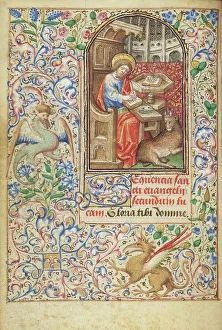 Sequencia san
cti euangelij
secundum lu
cam. Gloria tibi domine.